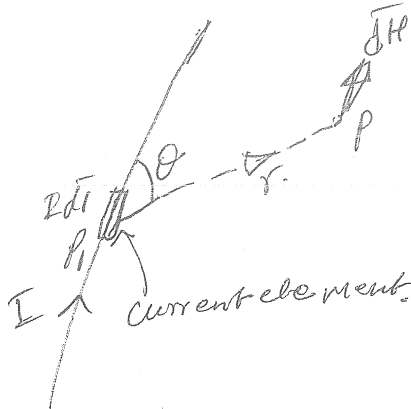 d̅H̅
P
θ
r.
I d̅l̅
P₁
I
current element.